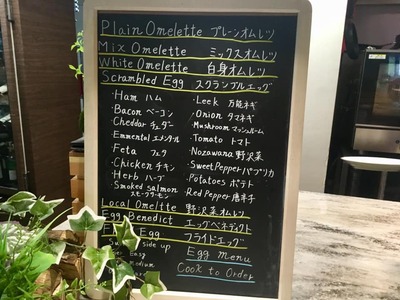 Plain Omelette プレーンオムレツ
Mix Omelette ミックスオムレツ
White Omelette 白身オムレツ
Scrambled Egg スクランブルエッグ
・Ham ハム
・Bacon ベーコン
・Cheddar チェダー
・Emmental エメンタール
・Feta フェタ
・Chicken チキン
・Herb ハーブ
・Smoked salmon
スモークサーモン
・Leek 万能ネギ
・Onion タマネギ
・Mushroom マッシュルーム
・Tomato トマト
・Nozawana 野沢菜
・Sweet Pepper パプリカ
・Potatoes ポテト
・Red Pepper 唐辛子
Local Omeltte 野沢菜オムレツ
Egg Benedict エッグベネディクト
Egg フライドエッグ
side up
Easy
Egg Menu
Cook to Order